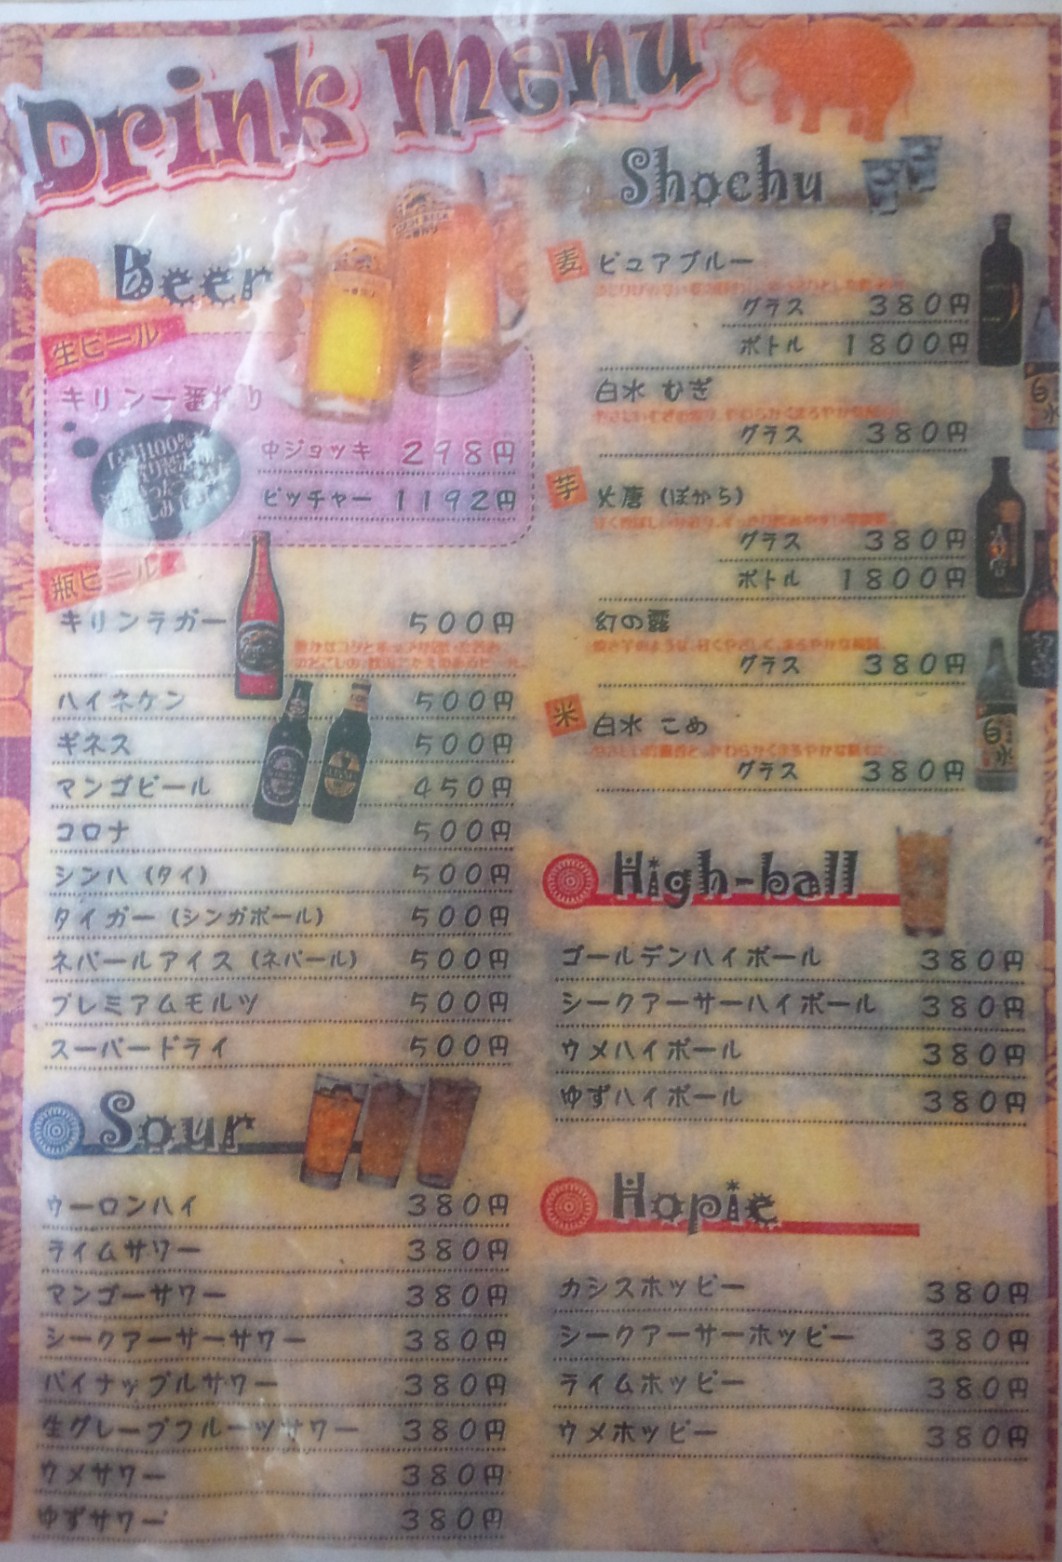 Drink Menu
Beer
生ビール
キリン一番搾り
中ジョッキ 298円
ピッチャー 1192円
瓶ビール
キリンラガー 500円
ハイネケン 500円
ギネス 500円
マンゴビール 450円
コロナ 500円
シンハ (タイ) 500円
タイガー (シンガポール) 500円
ネパールアイス (ネパール) 500円
プレミアムモルツ 500円
スーパードライ 500円
Sour
ウーロンハイ 380円
ライムサワー 380円
マンゴーサワー 380円
シークアーサーサワー 380円
パイナップルサワー 380円
生グレープフルーツサワー 380円
ウメサワー 380円
ゆずサワー 380円
Shochu
麦 ピュアブルー
グラス 380円
ボトル 1800円
白水 むぎ
グラス 380円
芋 火唐 (ぽから)
グラス 380円
ボトル 1800円
幻の露
グラス 380円
米 白水 こめ
グラス 380円
白水
High-ball
ゴールデンハイボール 380円
シークアーサーハイボール 380円
ウメハイボール 380円
ゆずハイボール 380円
Hopie
カシスホッピー 380円
シークアーサーホッピー 380円
ライムホッピー 380円
ウメホッピー 380円